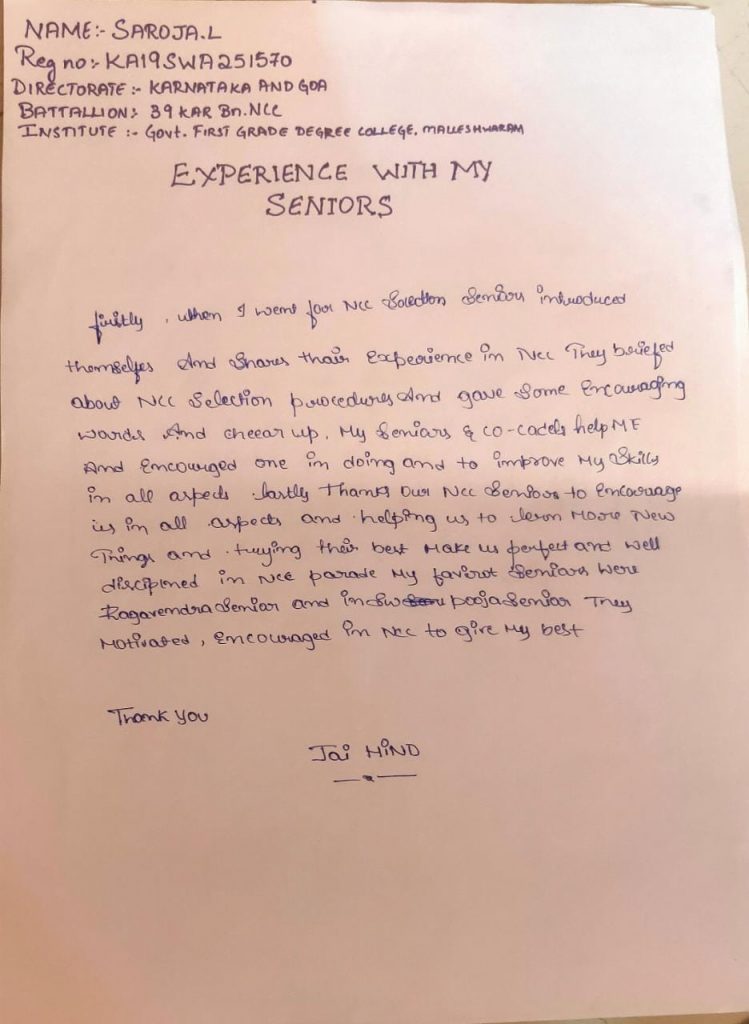 NAME:- SAROJA.L
Reg no:- KA19SWA251570
DIRECTORATE:- KARNATAKA AND GOA
BATTALLION:- 39 KAR Bn.NCC
INSTITUTE :- Govt. FIRST GRADE DEGREE COLLEGE, MALLESHWARAM
EXPERIENCE WITH MY
SENIORS
firstly, when I went for NCC Selection Seniors introduced
themselfes And Shares their Experience in NCC They briefed
about NCC Selection procedures And gave Some Encouraging
words And cheear up, My Seniors & co-cadets help ME
And Encourged one in doing and to improve My Skills
in all aspects lastly Thanks Our NCC Seniors to Encourage
us in all aspects and helping us to lern Moore New
Things and trying their best Make us perfect and well
disciplined in NCC parade My favirot Seniors Were
Ragavendra Senior and indu pooja Senior They
Motivated, Encouraged in NCC to give My best
Thank you
Jai HIND